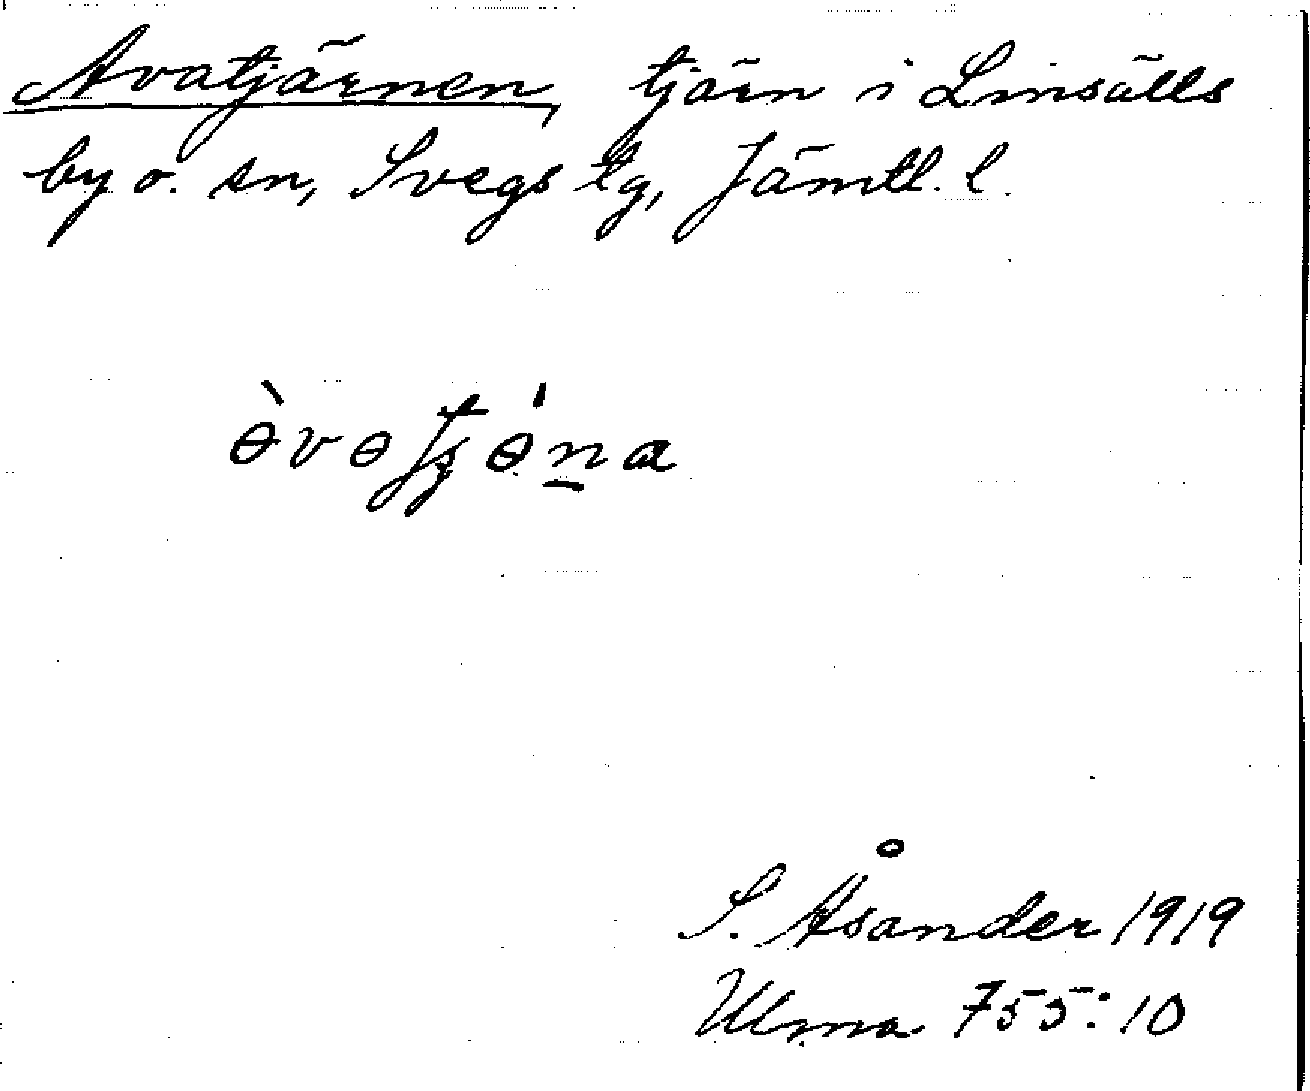 Avatjärnen, tjärn i Linsälls
by o. sn, Svegs tg, Jämtl. l.
ɵ̀vɵʈʂɵ́n̲a
S. Åsander 1919
Ulma 755:10